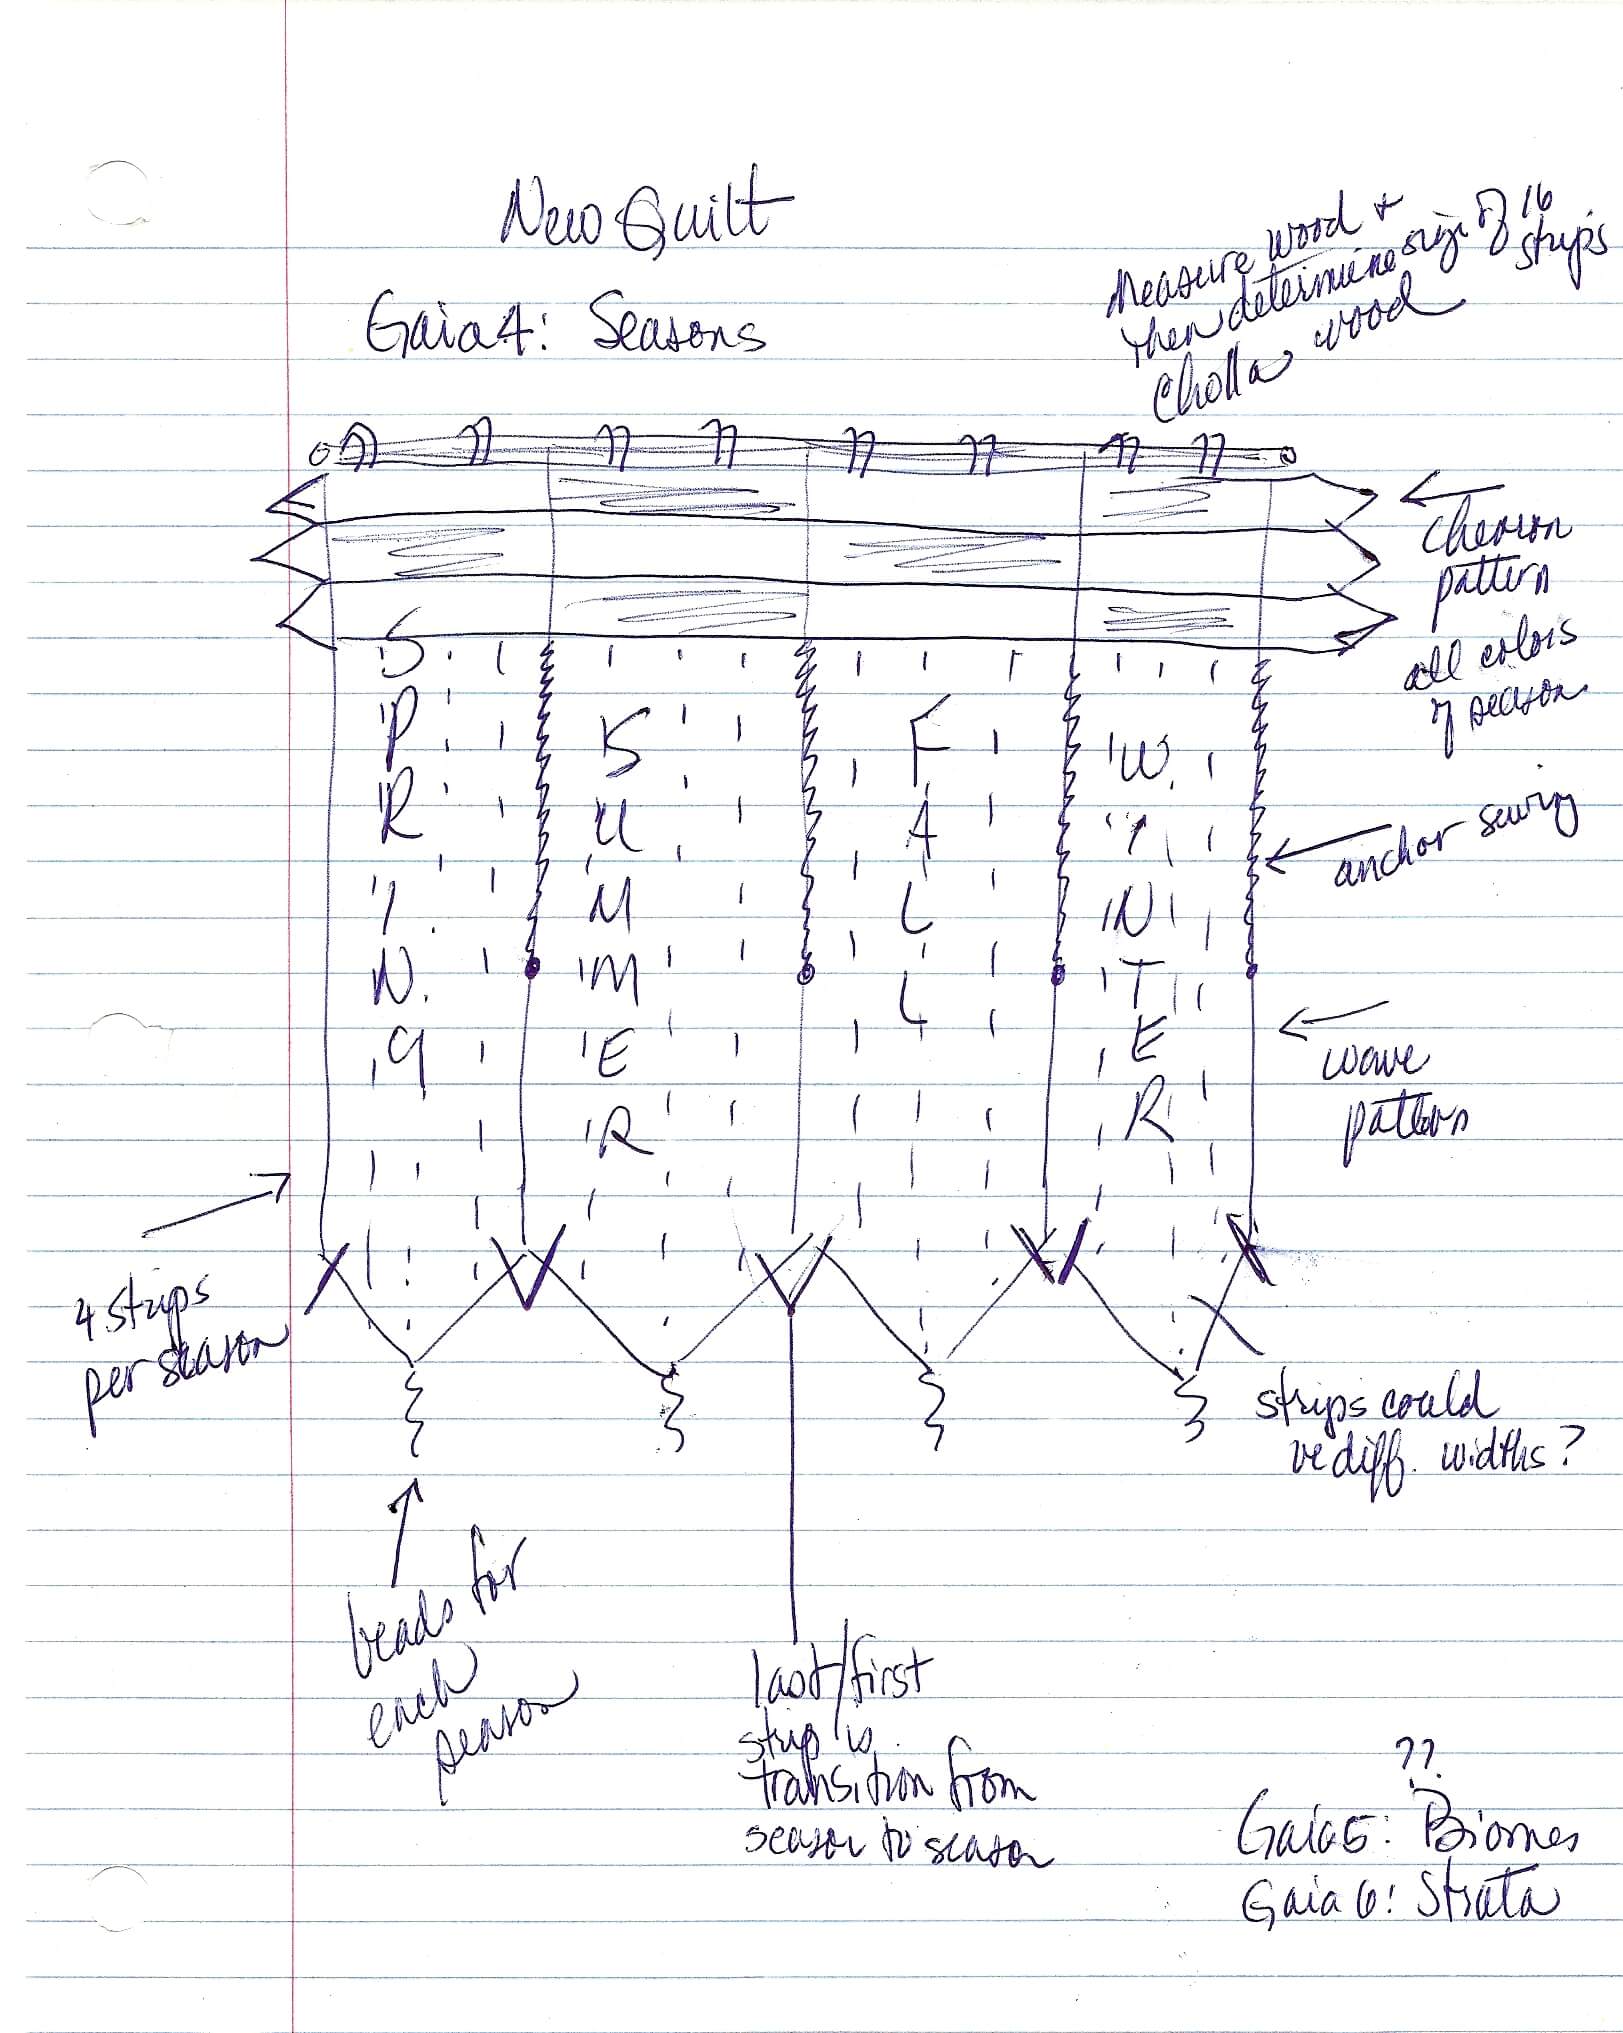 New Quilt
Measure wood +
then determine size of 16
strips
Cholla wood
Gaia 4: Seasons
chevron
pattern
all colors
of season
SPRING
SUMMER
FALL
WINTER
anchor sewing
wave
pattern
4 strips
per season
strips could
be diff. widths?
beads for
each
season
last/first
strip is
transition from
season to season
??
Gaia 5: Biomes
Gaia 6: Strata